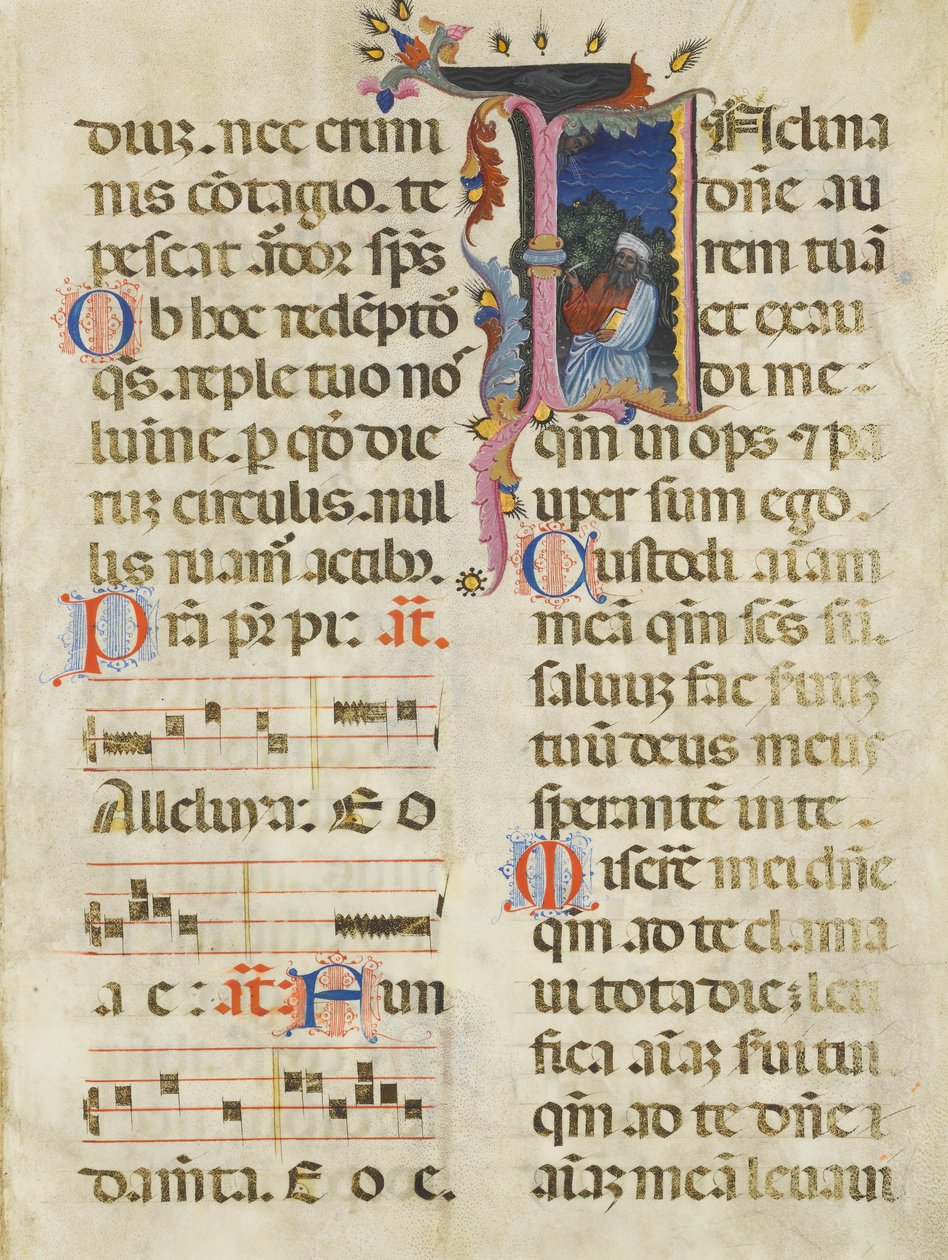 diuꝫ. nec crimi
nis cōtagio. te
pescat ādor sp̄s
Ob hoc redēptō
qs̄. reple tuo no
lumīne. ꝑ qd̄ die
ruꝫ circulis. nul
lis ruam̄ actibꝫ.
Prā pr̄ pi: añ.
Alleluya: E O
a e: añ: Fun
dam̄ta. E o e.
INclina
dn̄e au
rem tuā
et exau
di me:
qm̄ inops ⁊ pa
uper sum ego.
Custodi aīam
meā qm̄ scs̄ sū.
saluuꝫ fac seruuꝫ
tuū deus meus
sperantē in te.
Miserēre mei dn̄e
qm̄ ad te clama
ui tota die: leti
fica aīaꝫ serui tui
qm̄ ad te dn̄e
aīaꝫ meā leuaui